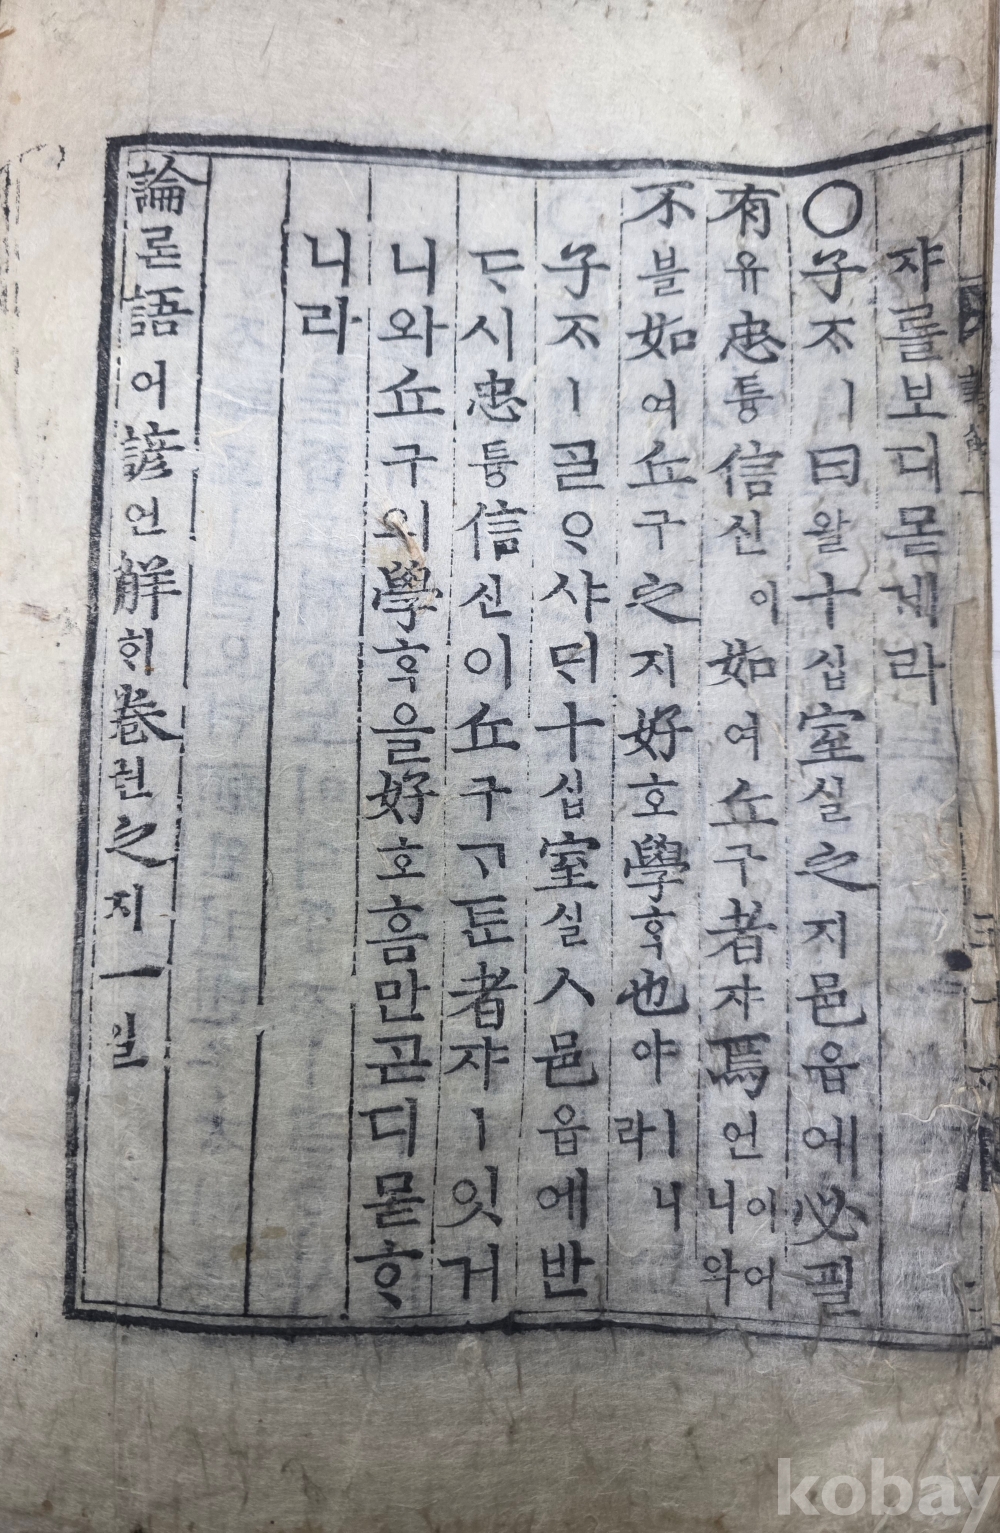 쟈를보디몯게라
○子ᄌᆞㅣ曰왈十십室실之지邑읍에必필
有유忠튱信신이如여丘구者쟈焉언이어니와
不블如여丘구之지好호學ᄒᆞᆨ也야ㅣ니라
子ᄌᆞㅣᄀᆞᆯᄋᆞ샤ᄃᆡ十십室실ㅅ邑읍에반
ᄃᆞ시忠튱信신이丘구ᄀᆞᄐᆞᆫ者쟈ㅣ잇거
니와丘구의學ᄒᆞᆨ을好호홈만ᄀᆞᆮ디몯ᄒᆞ
니라
論론語어諺언解ᄒᆡ卷권之지一일
kobay